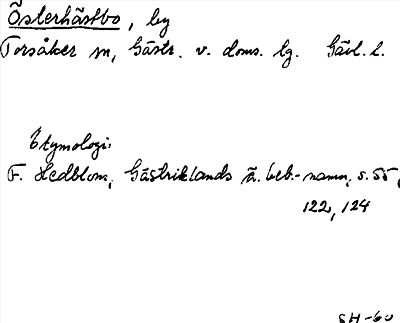 Österhästbo, by
Torsåker sn, Gästr. v. doms. tg. Gävl. l.
Etymologi:
F. Hedblom, Gästriklands ä. beb.-namn, s. 55,
122, 124
SH-60